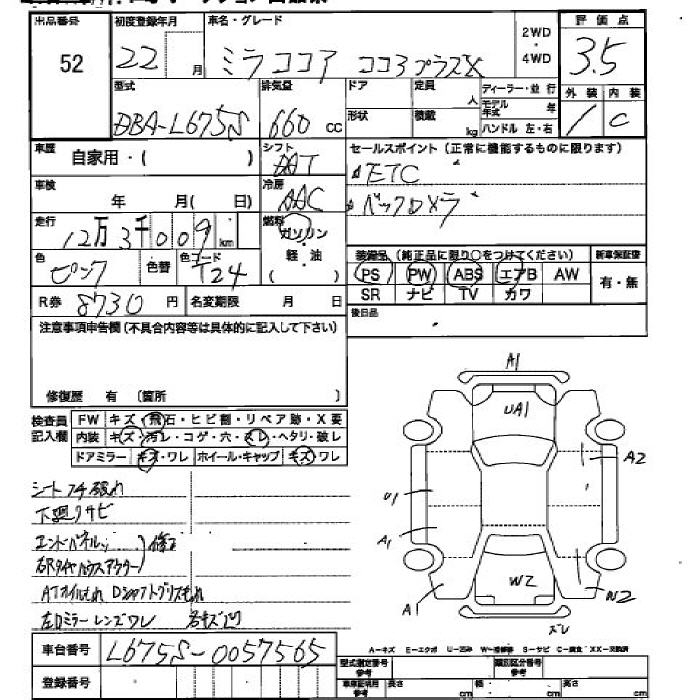 出品番号
52
初度登録年月
22 月
車名・グレード
ミラココア ココアプラスX
2WD
・
4WD
評価点
3.5
型式
DBA-L675S
排気量
660 cc
ドア
形状
定員 人
積載 kg
ディーラー・並行
モデル年式 年
ハンドル 左・右
外装 内装
C
車歴
自家用・( )
シフト
AT
セールスポイント (正常に機能するものに限ります)
ETC
車検
年 月( 日)
冷房
AAC
バックカメラ
走行
12万3千009 km
燃料
ガソリン
・
軽・油
( )
色
ピンク
色替
色コード
T24
装備品 (純正品に限り○をつけてください)
新車保証書
PS PW ABS エアB AW
SR ナビ TV カワ
有・無
R券 8730 円
名変期限 月 日
後日品
注意事項申告欄 (不具合内容等は具体的に記入して下さい)
修復歴 有 〔箇所 〕
検査員記入欄
FW キズ・飛石・ヒビ割・リペア跡・X要
内装 キズ・汚レ・コゲ・穴・スレ・ヘタリ・破レ
ドアミラー キズ・ワレ ホイール・キャップ キズ・ワレ
シートフチ破れ
下廻りサビ
エンドパネル
右Rタイヤハウスアウター
修正
ATオイルもれ Dシャフトグリスもれ
左ドミラーレンズワレ
A1
UA1
A2
U1
A1
W2
A1
W2
ズレ
車台番号 L675S-0057565
登録番号
A-キズ E-エクボ U-凹み W-補修跡 S-サビ C-腐食 XX-交換済
型式指定番号
類別区分番号
長さ cm
幅 cm
高さ cm